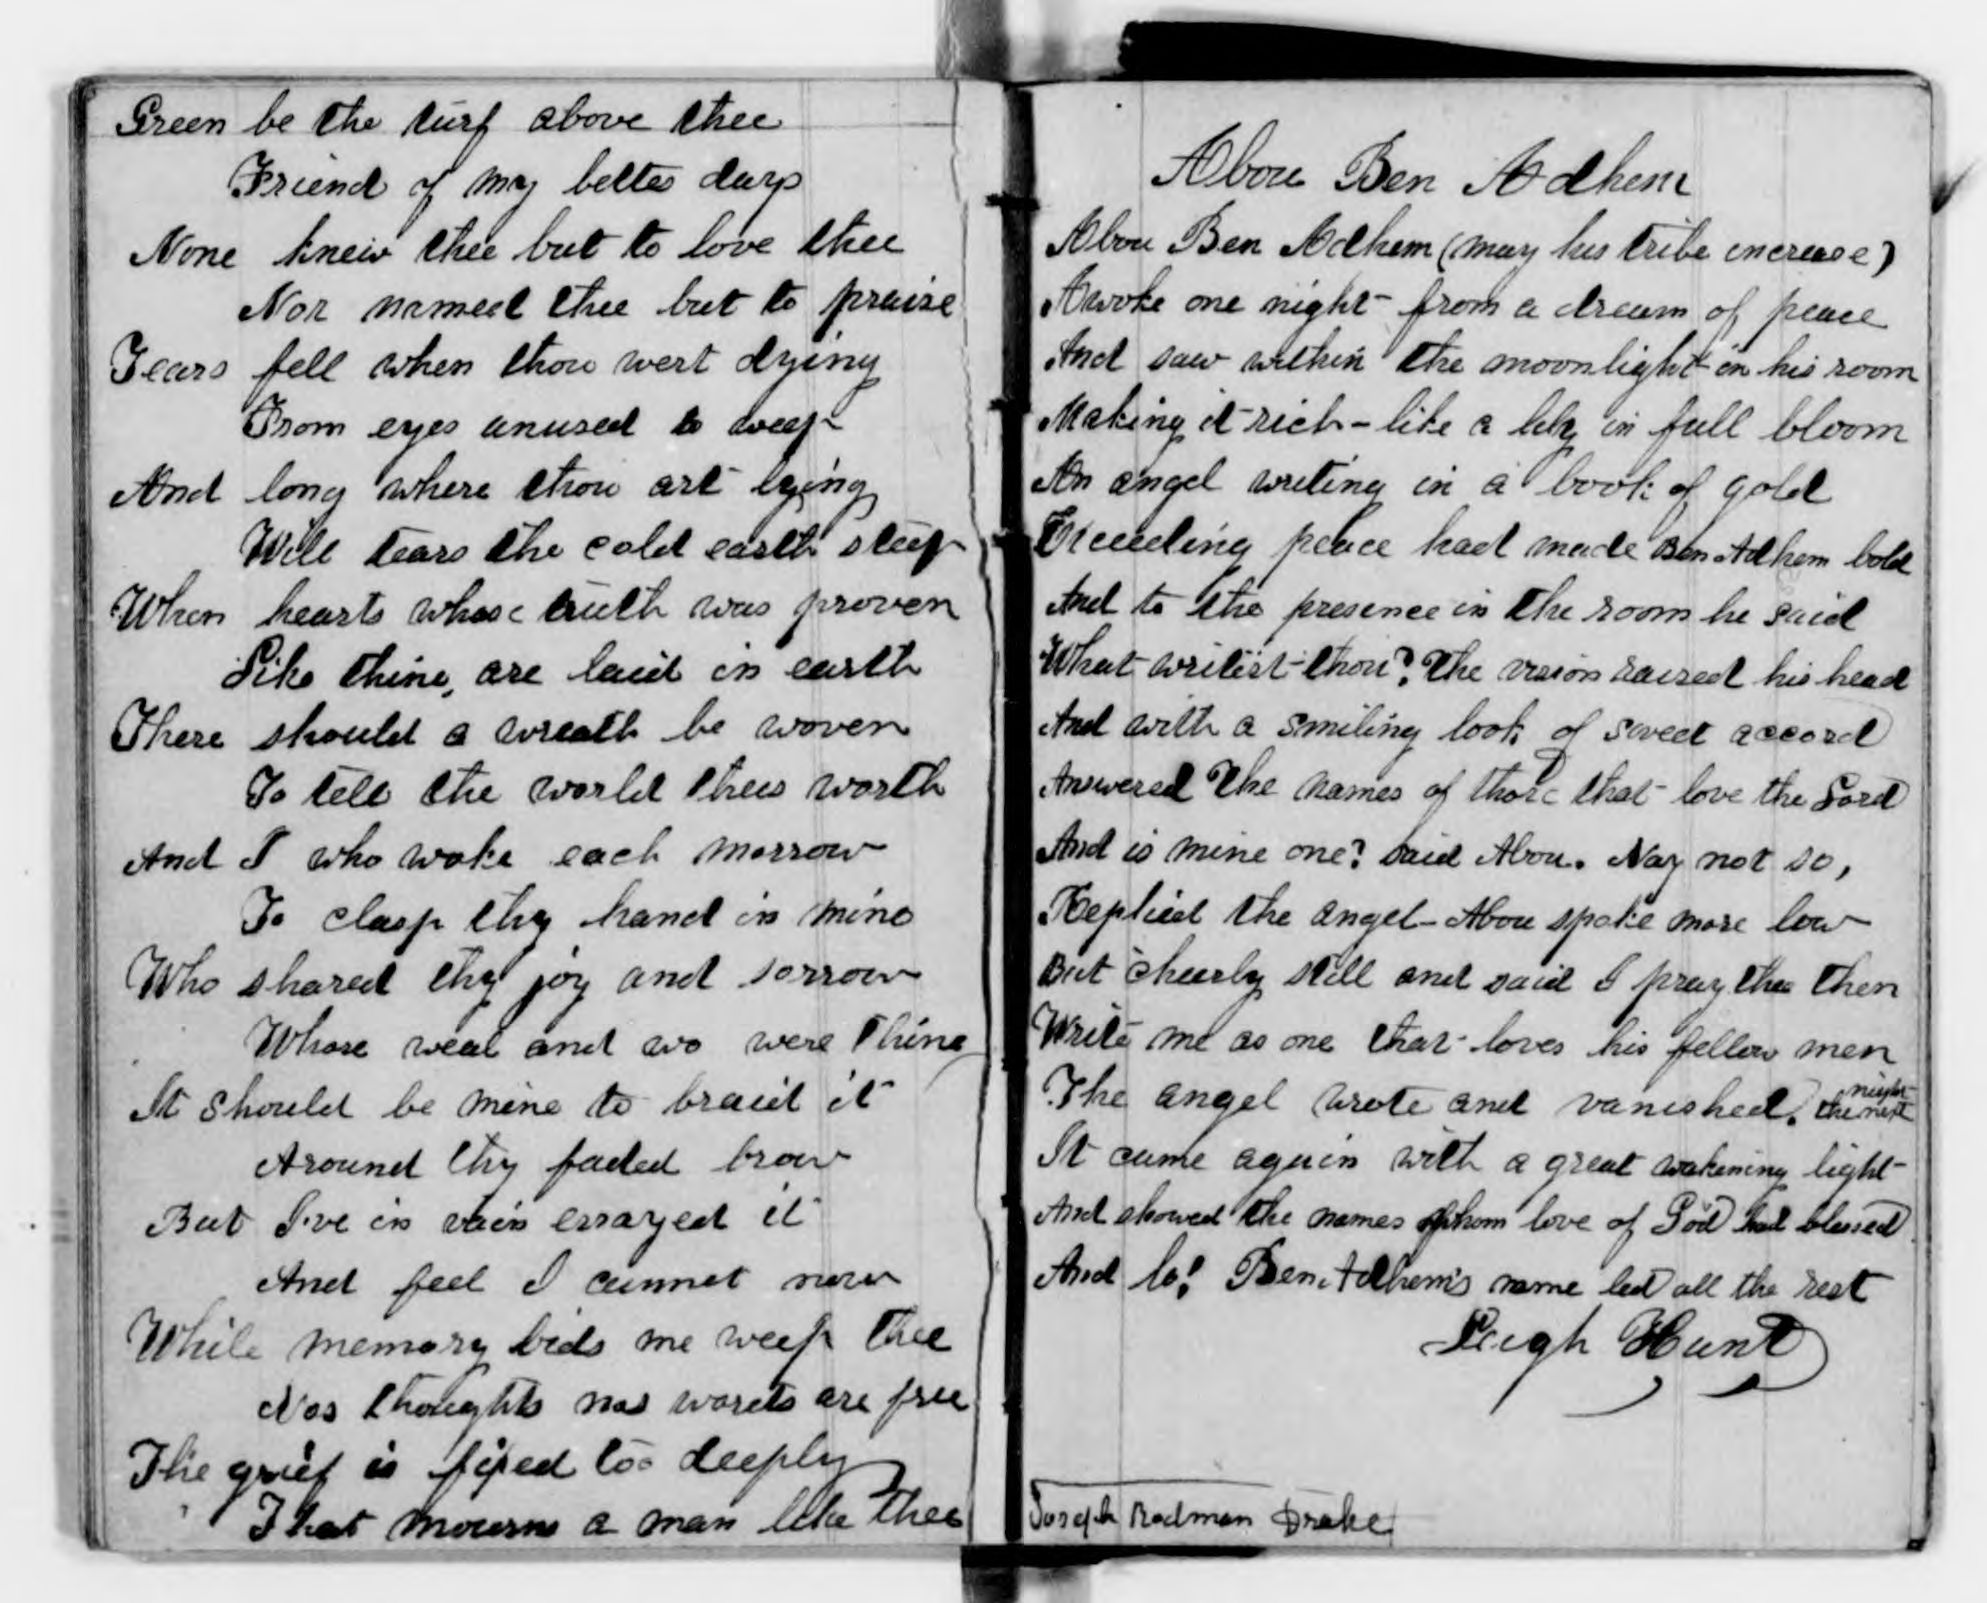 Green be the turf above thee
Friend of my better days
None knew thee but to love thee
Nor named thee but to praise
Tears fell when thou wert dying
From eyes unused to weep
And long where thou art lying
Will tears the cold earth steep
When hearts whose truth was proven
Like thine, are laid in earth
There should a wreath be woven
To tell the world their worth
And I who woke each morrow
To clasp thy hand in mine
Who shared thy joy and sorrow
Whose weal and wo were thine
It should be mine to braid it
Around thy faded brow
But I've in vain essayed it
And feel I cannot now
While memory bids me weep thee
Nor thoughts nor words are free
The grief is fixed too deeply
That mourns a man like thee
Abou Ben Adhem
Abou Ben Adhem (may his tribe increase)
Awoke one night from a dream of peace
And saw within the moonlight in his room
Making it rich - like a lily in full bloom
An angel writing in a book of gold
Exceeding peace had made Ben Adhem bold
And to the presence in the room he said
What writest thou? The vision raised his head
And with a smiling look of sweet accord
Answered The names of those that love the Lord
And is mine one? said Abou. Nay not so,
Replied the angel - Abou spoke more low
But cheerly still and said I pray thee then
Write me as one that loves his fellow men
The angel wrote and vanished. the next night
It came again with a great wakening light
And showed the names whom love of God had blessed
And lo! Ben Adhem's name led all the rest
Leigh Hunt
Joseph Rodman Drake